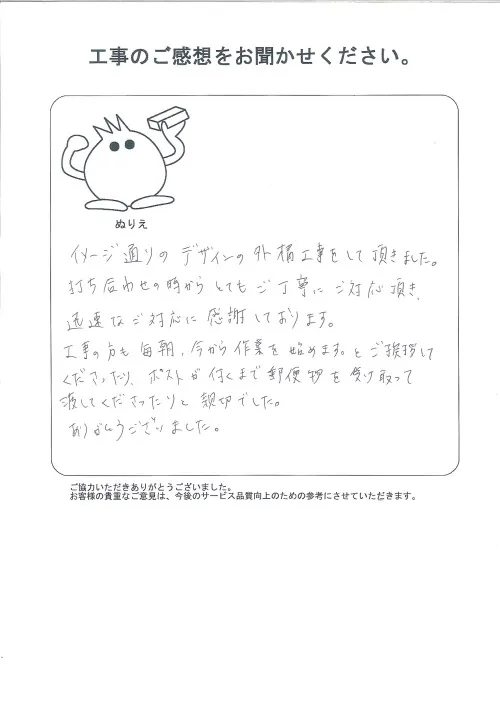 工事のご感想をお聞かせください。
ぬりえ
イメージ通りのデザインの外構工事をして頂きました。
打ち合わせの時からとてもご丁寧にご対応頂き、
迅速なご対応に感謝しております。
工事の方も毎朝、今から作業を始めます。とご挨拶して
くださったり、ポストが付くまで郵便物を受け取って
渡してくださったりと親切でした。
ありがとうございました。
ご協力いただきありがとうございました。
お客様の貴重なご意見は、今後のサービス品質向上のための参考にさせていただきます。